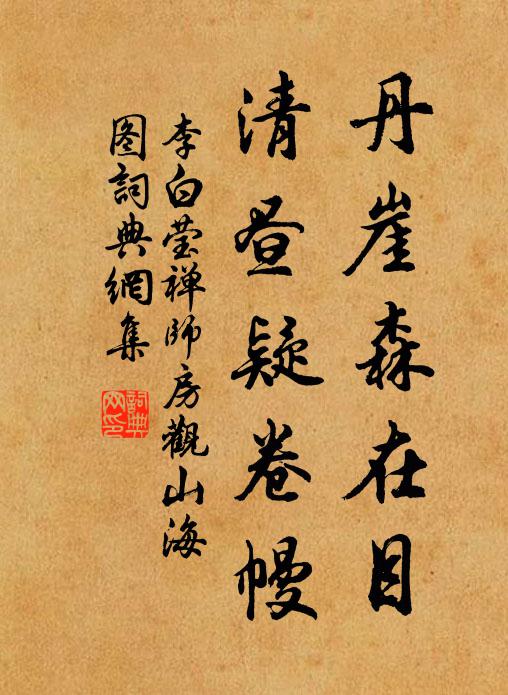 丹崖森在目
清昼疑卷幔
李白莹禅师房觀山海
图詞典網集
詞典网印